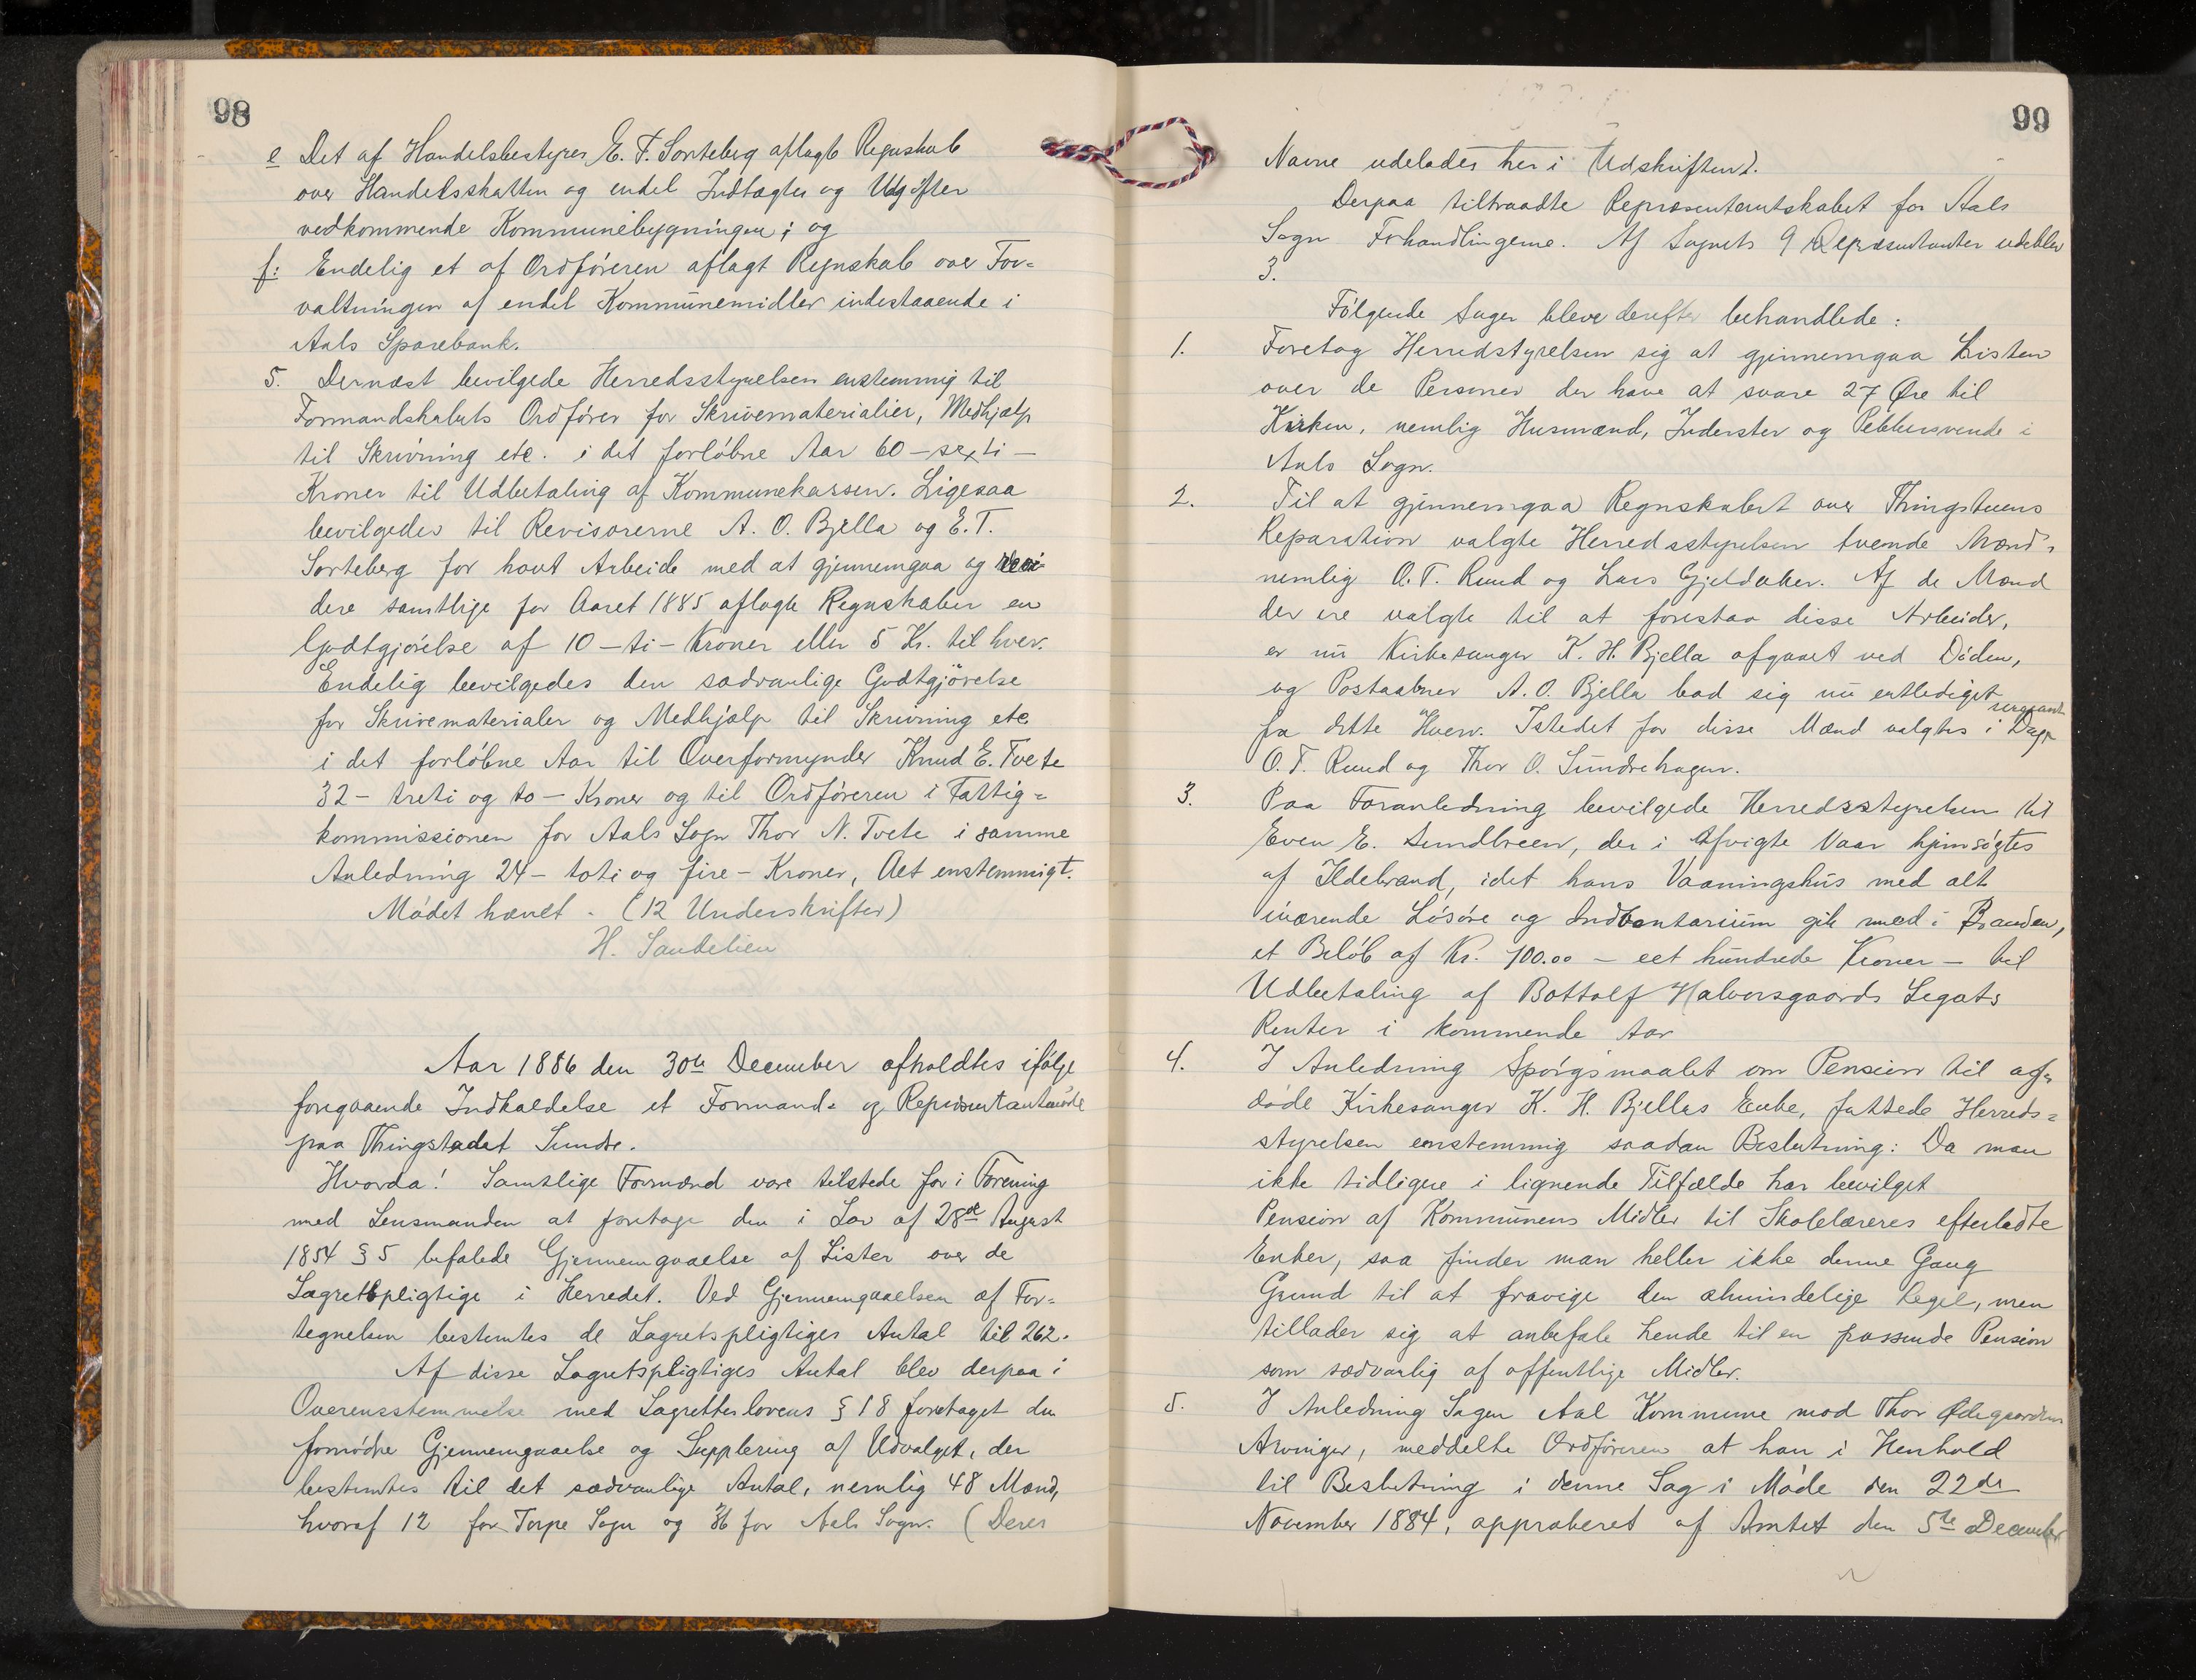 98
e Det af Handelsbestyrer E. T. Sorteberg aflagte Regnskab
over Handelsskatten og endel Indtægter og Udgifter
vedkommende Kommunebygningen; og
f: Endelig et af Ordføreren aflagt Regnskab over For=
valtningen af endel Kommunemidler indestaaende i
Aals Sparebank.
5. Dernæst bevilgede Herredsstyrelsen enstemmig til
Formandskabets Ordfører for Skrivematerialier, Medhjælp
til Skrivning etc. i det forløbne Aar 60 – sexti –
Kroner til Udbetaling af Kommunekassen. Ligesaa
bevilgedes til Revisorerne A. O. Bjella og E. T.
Sorteberg for havt Arbeide med at gjennemgaa og revi-
dere samtlige for Aaret 1885 aflagte Regnskaber en
Godtgjørelse af 10 – ti – Kroner eller 5 Kr. til hver.
Endelig bevilgedes den sædvanlige Godtgjørelse
for Skrivematerialer og Medhjælp til Skrivning etc.
i det forløbne Aar til Overformynder Knud E. Tvete
32 – treti og to – Kroner og til Ordføreren i Fattig=
kommissionen for Aals Sogn Thor N. Tvete i samme
Anledning 24 – toti og fire – Kroner, Alt enstemmigt.
Mødet hævet. (12 Underskrifter)
H. Sandelien
Aar 1886 den 30te December afholdtes ifølge
foregaaende Indkaldelse et Formand- og Repræsentantmøde
paa Thingstedet Sundre.
Hvorda! Samtlige Formænd vare tilstede for i Forening
med Lensmanden at foretage den i Lov af 28de August
1854 § 5 befalede Gjennemgaaelse af Lister over de
Lagretspligtige i Herredet. Ved Gjennemgaaelsen af For=
tegnelsen bestemtes de Lagretspligtiges Antal til 262.
Af disse Lagretspligtiges Antal blev derpaa i
Overensstemmelse med Lagretteslovens § 18 foretaget den
fornødne Gjennemgaaelse og Supplering af Udvalget, der
bestemtes til det sædvanlige Antal, nemlig 48 Mænd,
hvoraf 12 for Torpe Sogn og 36 for Aals Sogn. (Deres
99
Navne udelades her i Udskriften).
Derpaa tiltraadte Repræsentantskabet for Aals
Sogn Forhandlingerne. Af Sognets 9 Repræsentanter udeblev
3.
Følgende Sager bleve derefter behandlede:
1. Foretog Herredstyrelsen sig at gjennemgaa Listen
over de Personer der have at svare 27 Øre til
Kirken, nemlig Husmænd, Inderster og Pebbersvende i
Aals Sogn.
2. Til at gjennemgaa Regnskabet over Thingstuens
Reparation valgte Herredsstyrelsen tvende Mænd,
nemlig O. T. Ruud og Lars Gjeldaker. Af de Mænd
der ere valgte til at forestaa disse Arbeider,
er nu Kirkesanger K. H. Bjella afgaaet ved Døden,
og Postaabner A. O. Bjella bad sig nu entlediget
fra dette Hverv. Istedet for disse Mænd valgtes i Dag
O. T. Ruud og Thor O. Sundrehagen.
3. Paa Foranledning bevilgede Herredsstyrelsen til
Even E. Sundbreen, der i Afvigte Vaar hjemsøgtes
af Ildebrand, idet hans Vaaningshus med alt
iværende Løsøre og Indbontarium gik med i Branden,
et Beløb af Kr. 100.00 – eet hundrede Kroner – til
Udbetaling af Bottolf Halvorsgaards Legats
Renter i kommende Aar
4. I Anledning Spørgsmaalet om Pension til af=
døde Kirkesanger K. H. Bjellas Enke, fattede Herreds=
styrelsen enstemmig saadan Beslutning: Da man
ikke tidligere i lignende Tilfælde har bevilget
Pension af Kommunens Midler til Skolelæreres efterladte
Enker, saa finder man heller ikke denne Gang
Grund til at fravige den almindelige Regel, men
tillader sig at anbefale hende til en passende Pension
som sædvanlig af offentlige Midler.
5. I Anledning Sagen Aal Kommune mod Thor Ødegaardens
Arvinger, meddelte Ordføreren at han i Henhold
til Beslutning i denne Sag i Møde den 22de
November 1884, approberet af Amtet den 5te December